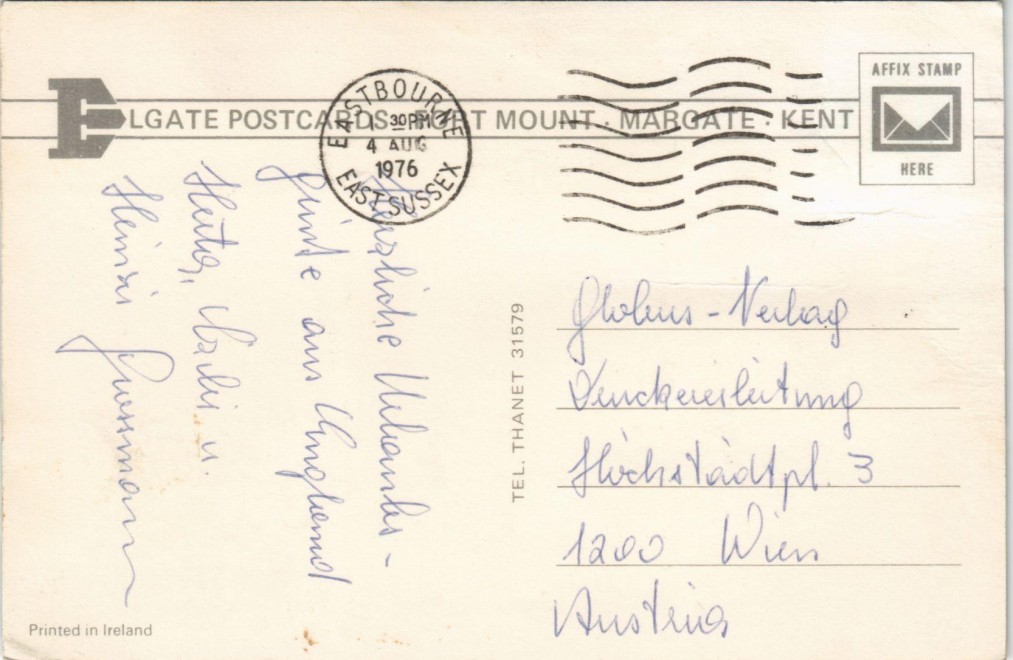 ELGATE POSTCARDS · MOUNT · MARGATE · KENT
EASTBOURNE
1 30PM
4 AUG
1976
EAST SUSSEX
AFFIX STAMP
HERE
Herzliche Urlaubs-
grüße aus England
Herta, u.
Heinzi Grossmann
TEL. THANET 31579
Globus-Verlag
Druckereileitung
Höchstädtpl. 3
1200 Wien
Austria
Printed in Ireland